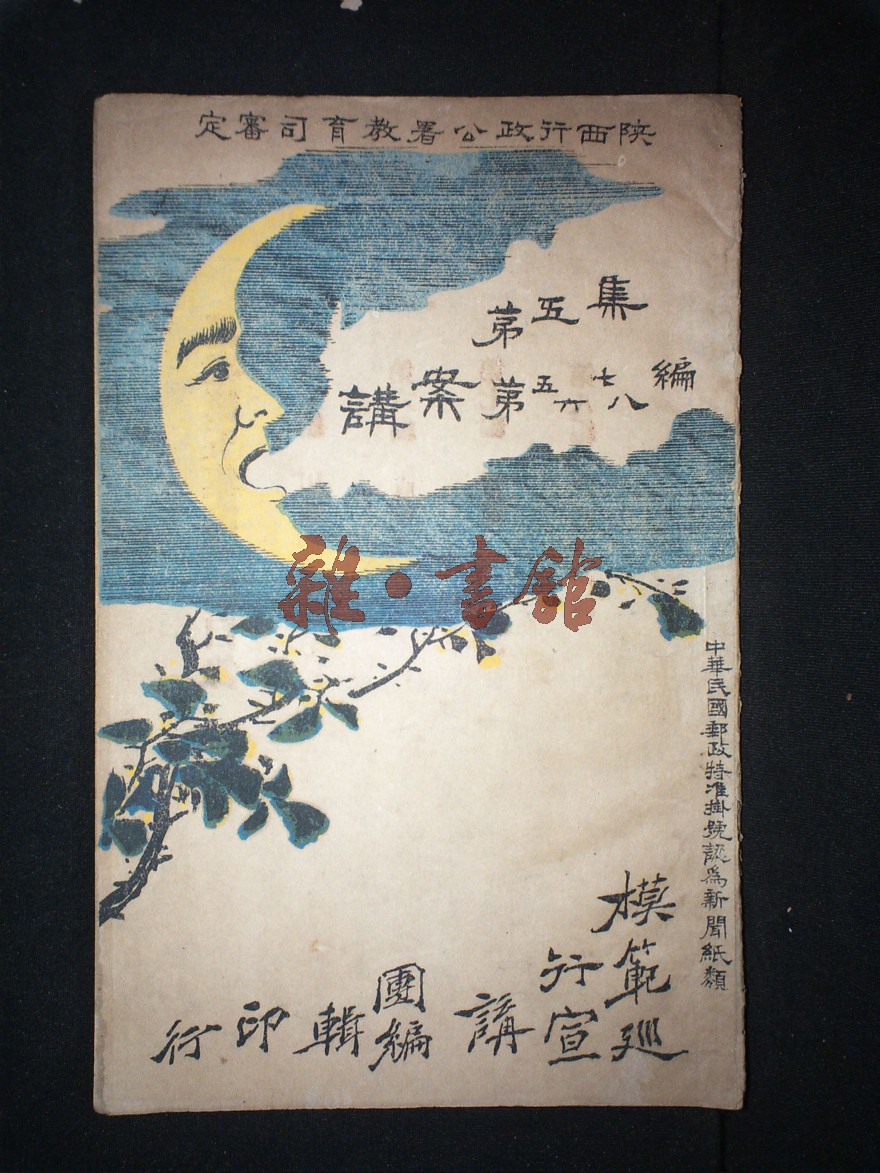 陝西行政公署教育司審定
第五集
講案第五六七八編
雜·書館
中華民國郵政特准掛號認為新聞紙類
模範巡行宣講團編輯印行